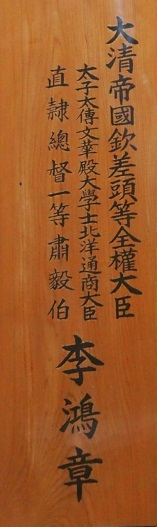 大清帝國欽差頭等全權大臣
太子太傅文華殿大學士北洋通商大臣
直隷總督一等肅毅伯
李鴻章